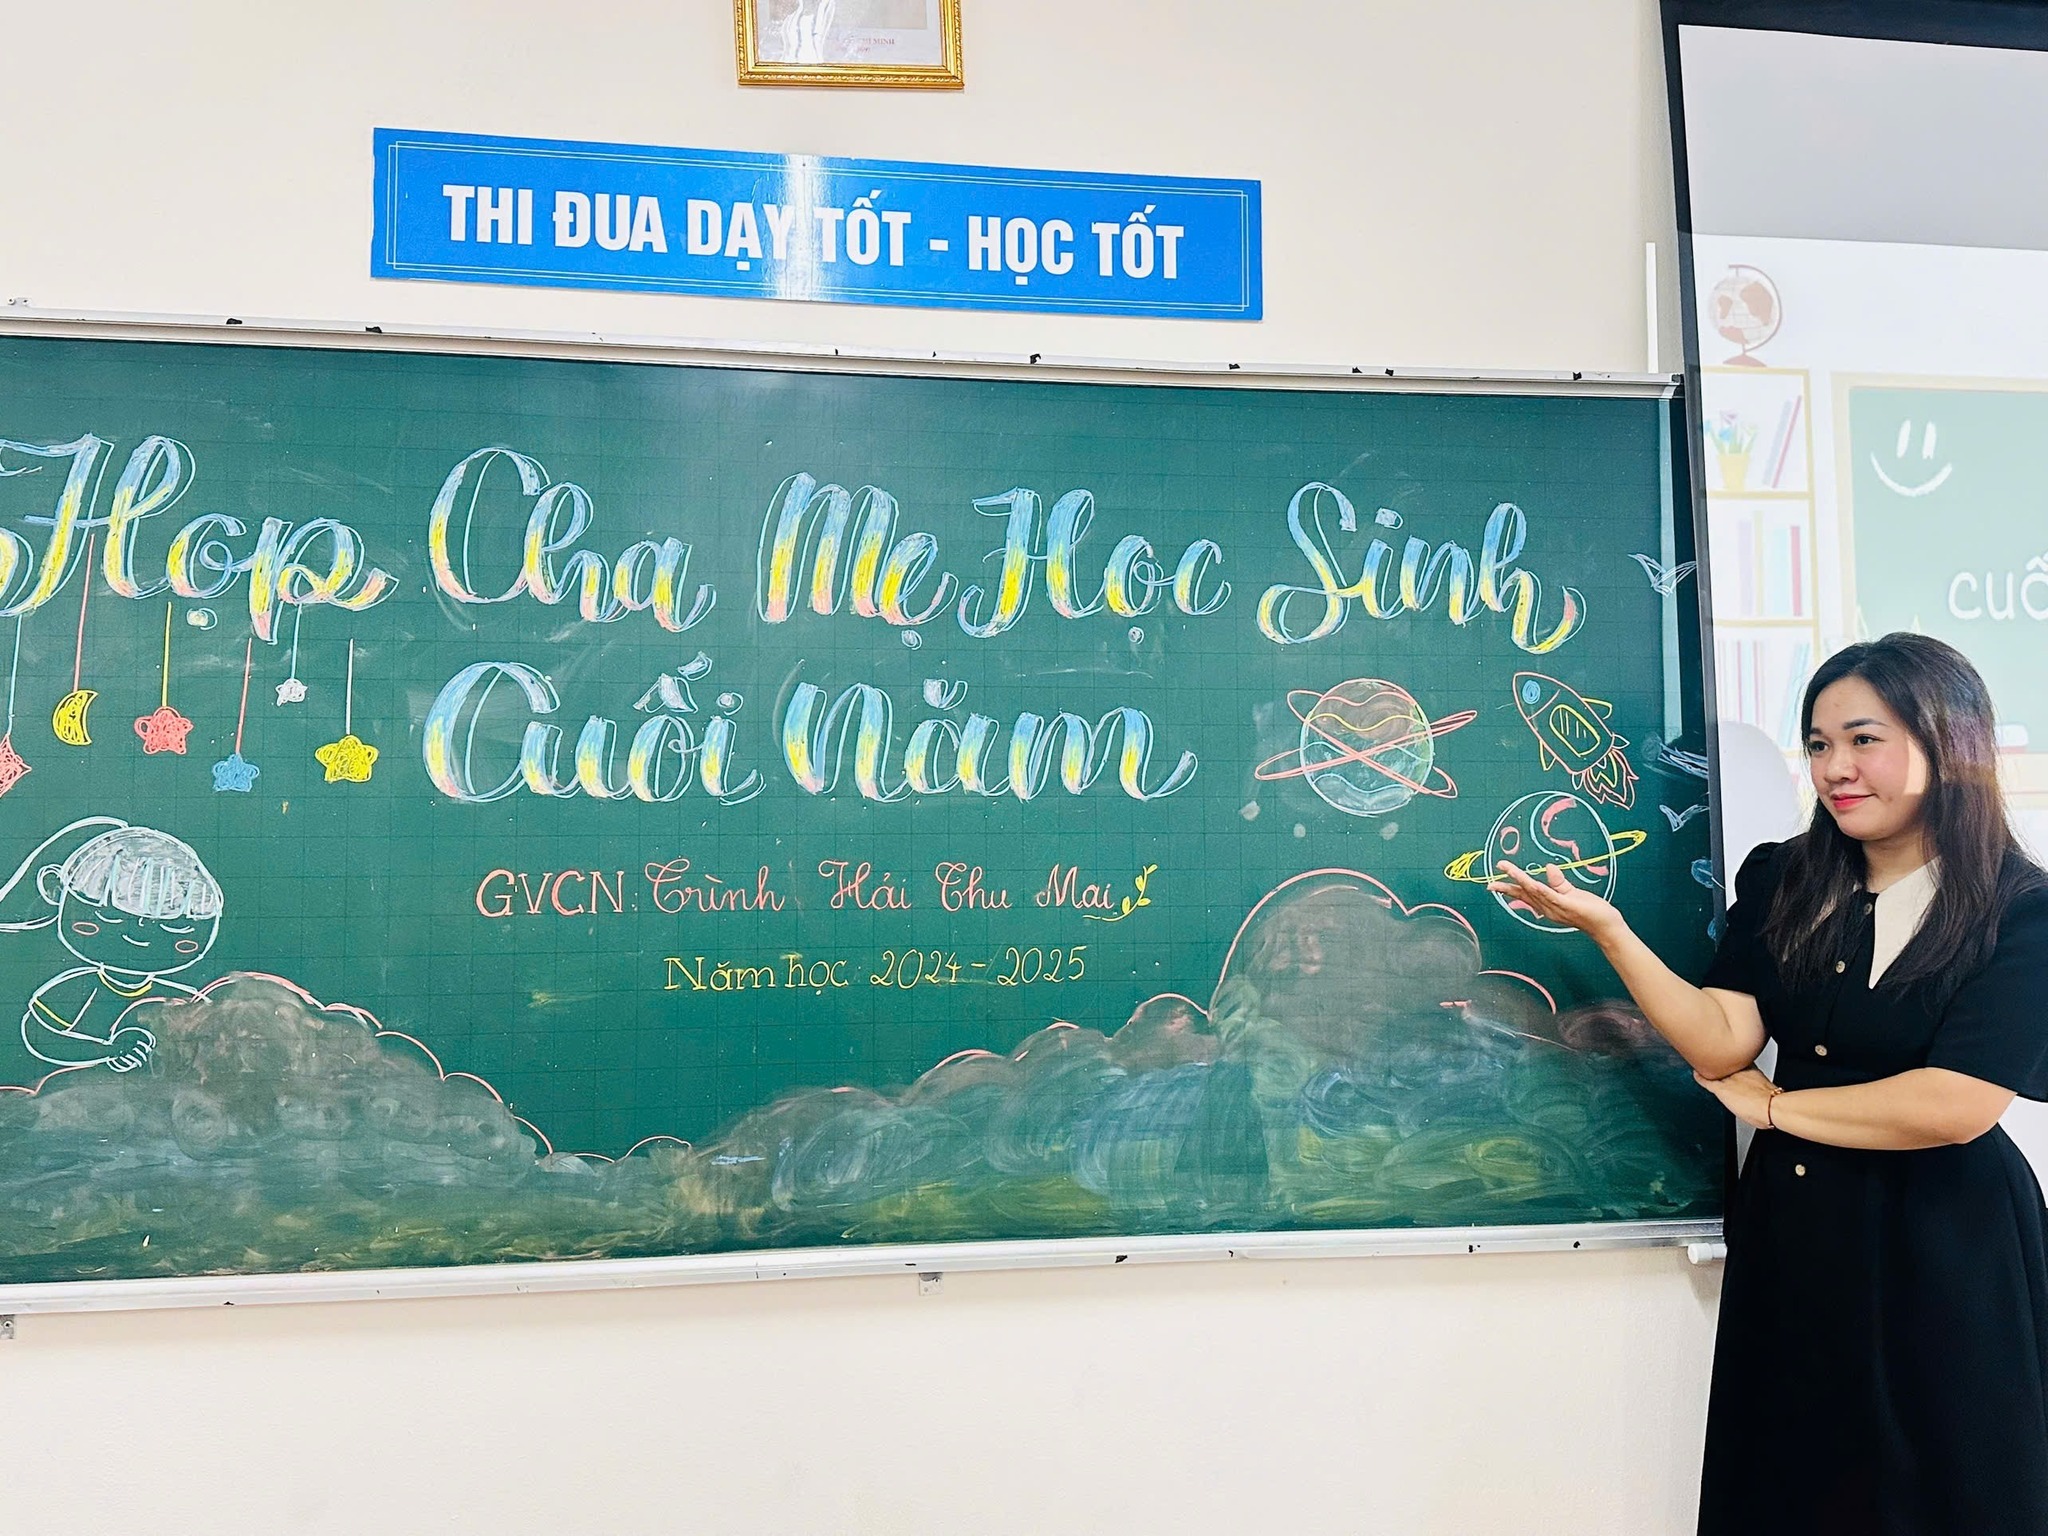 THI ĐUA DẠY TỐT - HỌC TỐT
Họp Cha Mẹ Học Sinh
Cuối Năm
GVCN: Trình Hải Thu Mai
Năm học 2024 - 2025